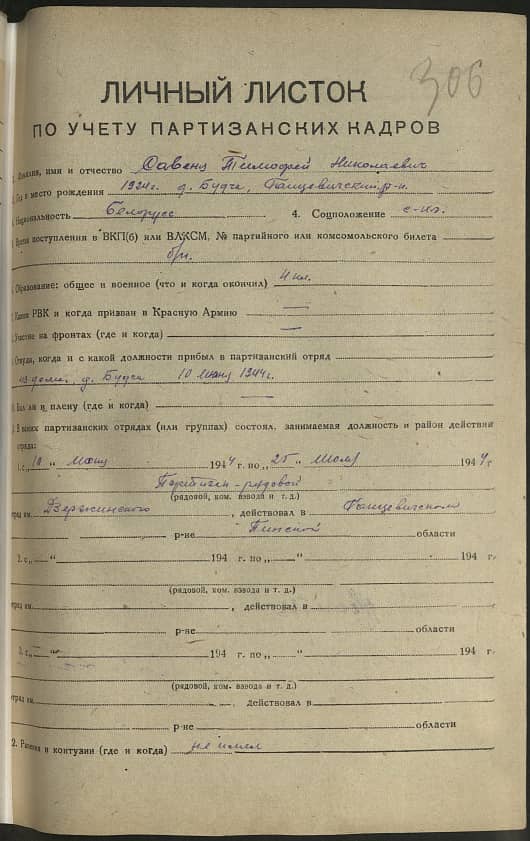 306
ЛИЧНЫЙ ЛИСТОК
ПО УЧЕТУ ПАРТИЗАНСКИХ КАДРОВ
имя и отчество Савенц Тимофей Николаевич
и место рождения 1924г. д. Будча, Ганцевичский р-н.
Национальность Белорусс 4. Соцположение с-кр.
поступления в ВКП(б) или ВЛКСМ, № партийного или комсомольского билета
б/п.
Образование: общее и военное (что и когда окончил) 4 кл.
РВК и когда призван в Красную Армию —
Участие на фронтах (где и когда) —
Откуда, когда и с какой должности прибыл в партизанский отряд
из дома, д. Будча 10 1944г.
в плену (где и когда) —
В каких партизанских отрядах (или группах) состоял, занимаемая должность и район действий
отряда:
1. с „10 " 1944 г. по „25 " Июля 1944 г.
Партизан-рядовой
(рядовой, ком. взвода и т. д.)
отряд им. Дзержинского, действовал в Ганцевичском
р-не Пинской области
2. с „ " 194 г. по „ " 194 г.
(рядовой, ком. взвода и т. д.)
отряд им. , действовал в
р-не области
3. с „ " 194 г. по „ " 194 г.
(рядовой, ком. взвода и т. д.)
отряд им. , действовал в
р-не области
2. Ранения и контузии (где и когда) не имел